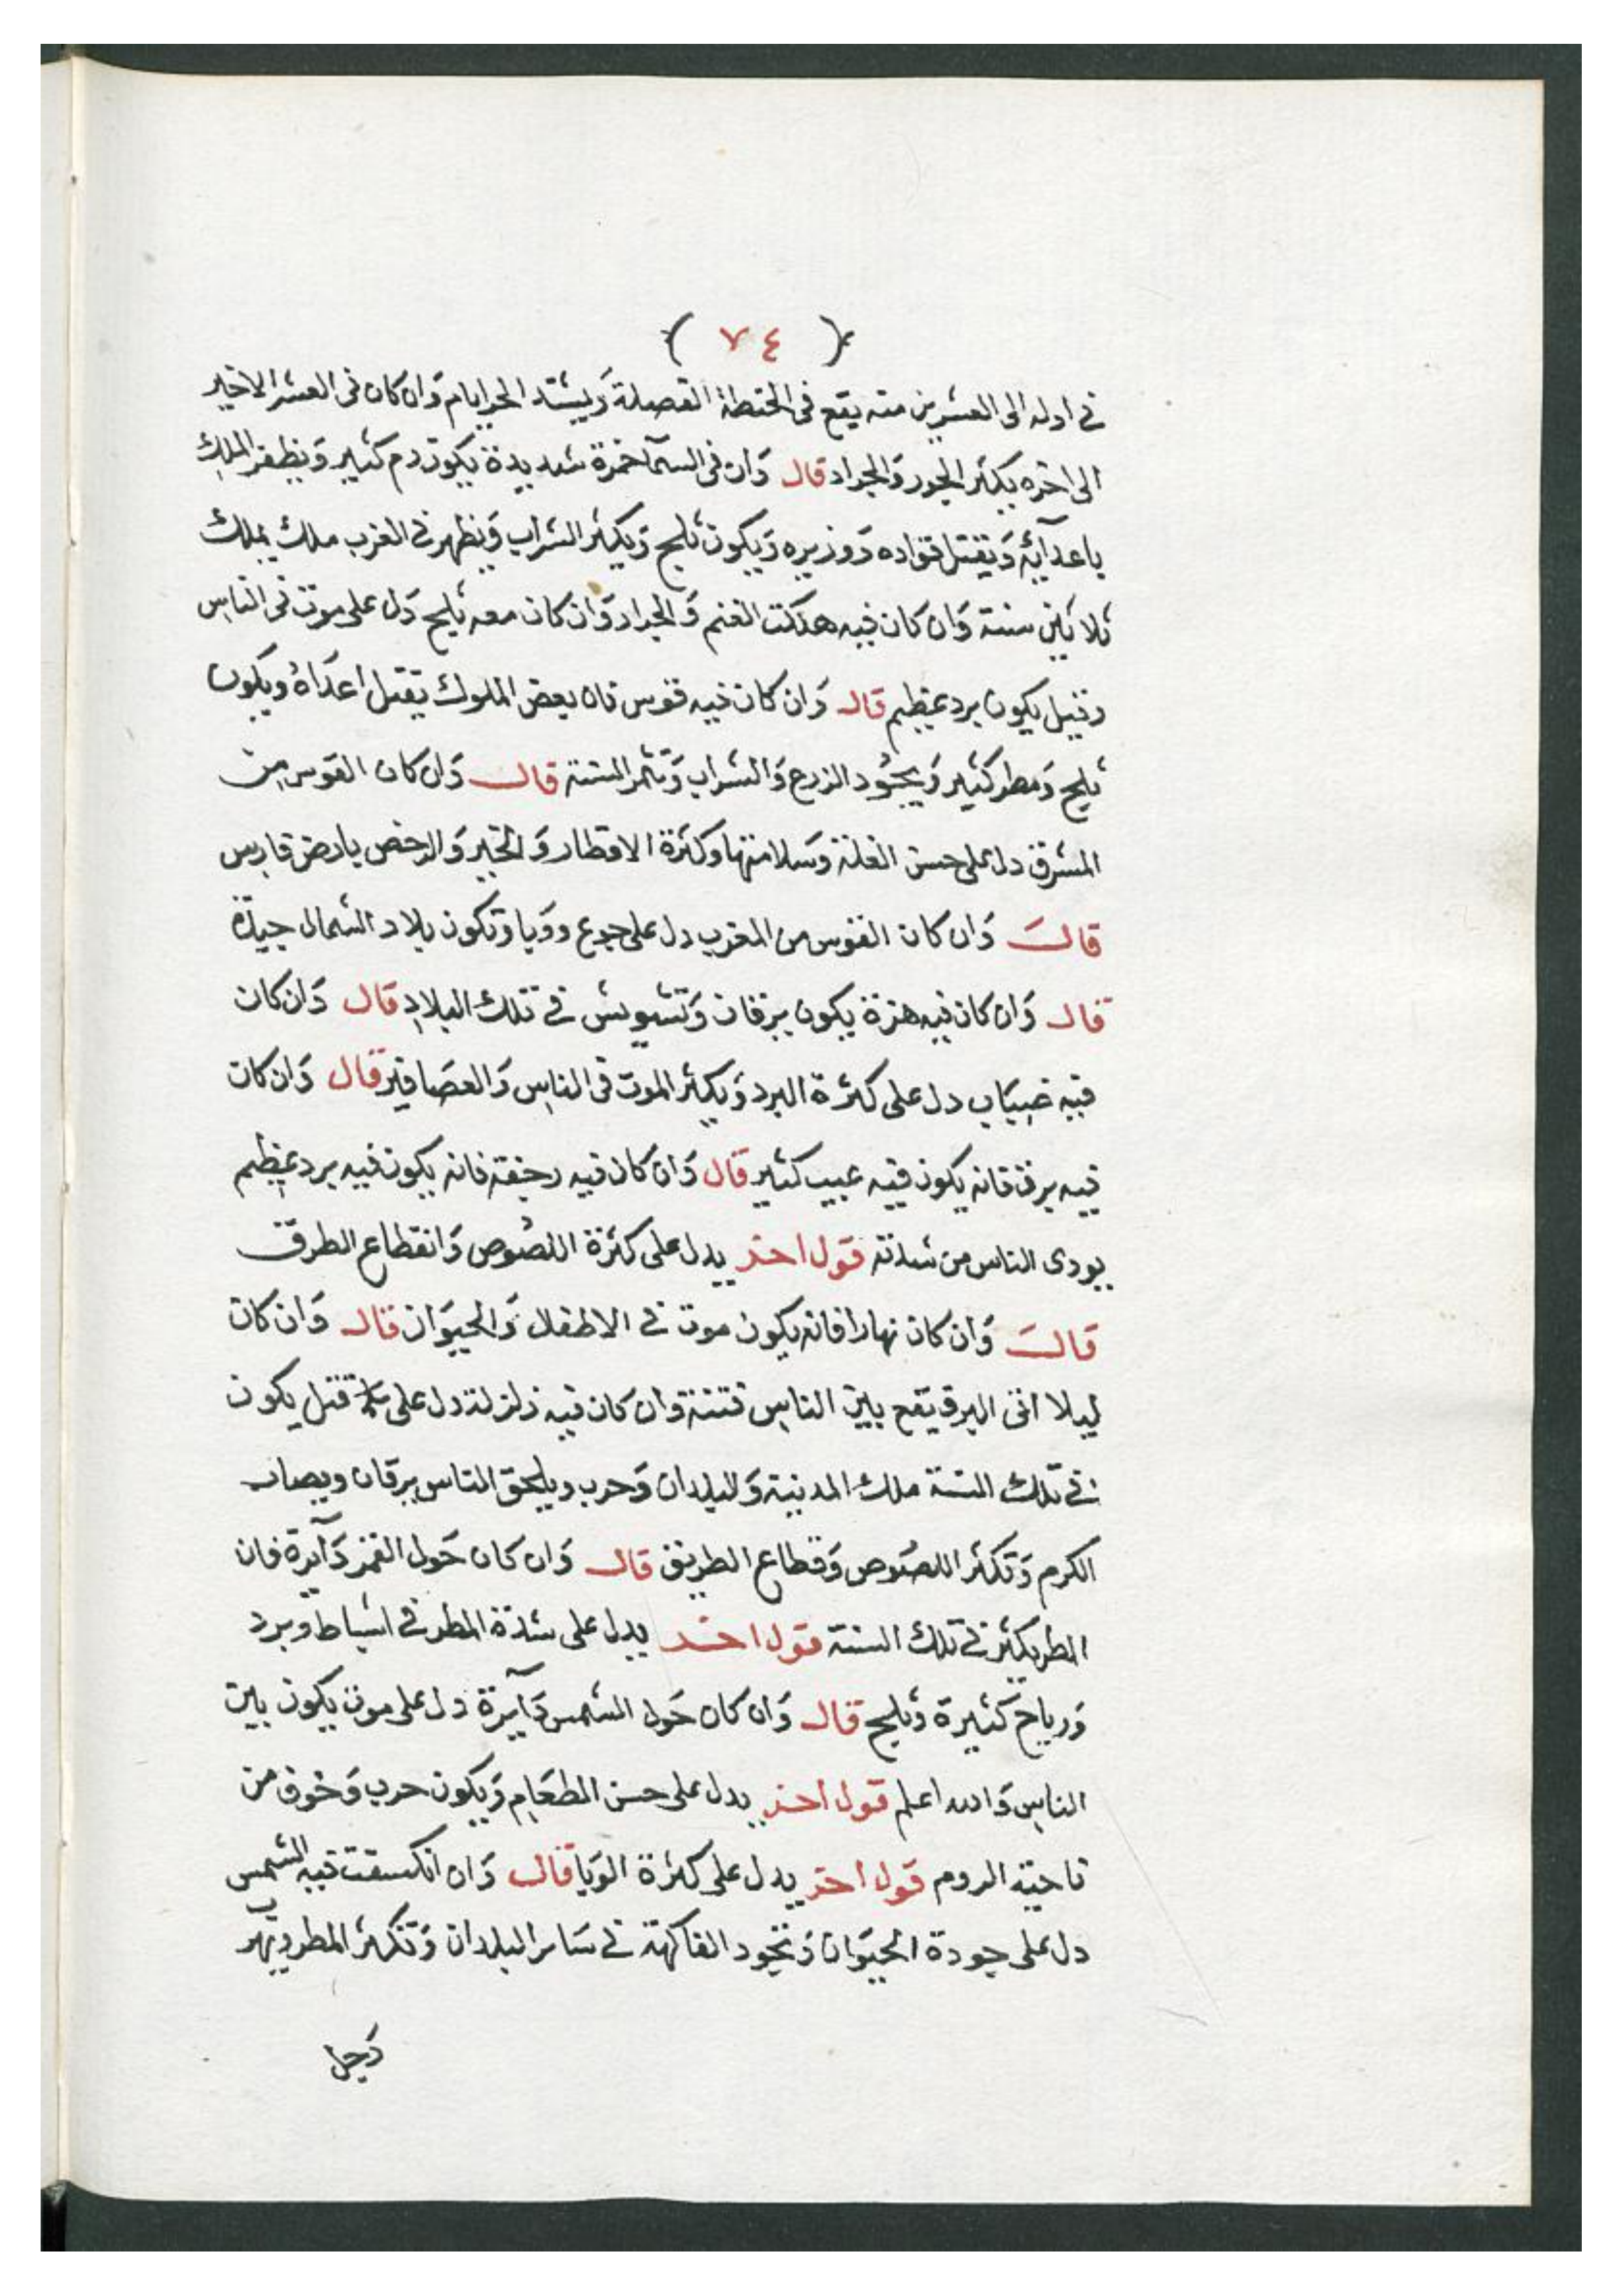 ( ٧٤ )
في اوله الى العشرين منه يقع في الحنطة القصلة ويشتد الحر ايام وان كان في العشر الاخير
الى اخره يكثر الجور والجراد قال وان في السمآ حمرة شديدة يكون دم كثير ويظفر الملك
باعدآئه ويقتل قواده ووزيره ويكون ثلج ويكثر الشراب ويظهر في الغرب ملك يملك
ثلاثين سنة وان كان فيه هلكت الغنم والجراد وان كان معه ثلج دل على موت في الناس
وقيل يكون برد عظيم قال وان كان فيه قوس فان بعض الملوك يقتل اعداه ويكون
ثلج ومطر كثير ويجود الزرع والشراب وتثمر السنة قال وان كان القوس من
المشرق دل على حسن الغلة وسلامتها وكثرة الاقطار والخير والرخص بارض فارس
قال وان كان القوس من المغرب دل على جوع ووبا وتكون بلاد الشمال جيدة
قال وان كان فيه هزة يكون يرقان وتشويش في تلك البلاد قال وان كان
فيه ضباب دل على كثرة البرد ويكثر الموت في الناس والعصافير قال وان كان
فيه برق فانه يكون فيه عيب كثير قال وان كان فيه رجفة فانه يكون فيه برد عظيم
يودى الناس من شدته قول اخر يدل على كثرة اللصوص وانقطاع الطرق
قال وان كان نهارا فانه يكون موت في الاطفال والحيوان قال وان كان
ليلا اتى البرق يقع بين الناس فتنة وان كان فيه زلزلة دل على قتل يكون
في تلك السنة ملك المدينة والبلدان وحرب ويلحق الناس يرقان ويصاب
الكرم وتكثر اللصوص وقطاع الطريق قال وان كان حول القمر دآيرة فان
المطر يكثر في تلك السنة قول اخر يدل على شدة المطر في اشباط وبرد
ورياح كثيرة وثلج قال وان كان حول الشمس دآيرة دل على موت يكون بين
الناس والله اعلم قول اخر يدل على حسن الطعام ويكون حرب وخوف من
ناحية الروم قول اخر يدل على كثرة الوبا قال وان انكسفت فيه الشمس
دل على جودة الحيوان وتجود الفاكهة في ساير البلدان وتكثر المطر ويهرب
دجل